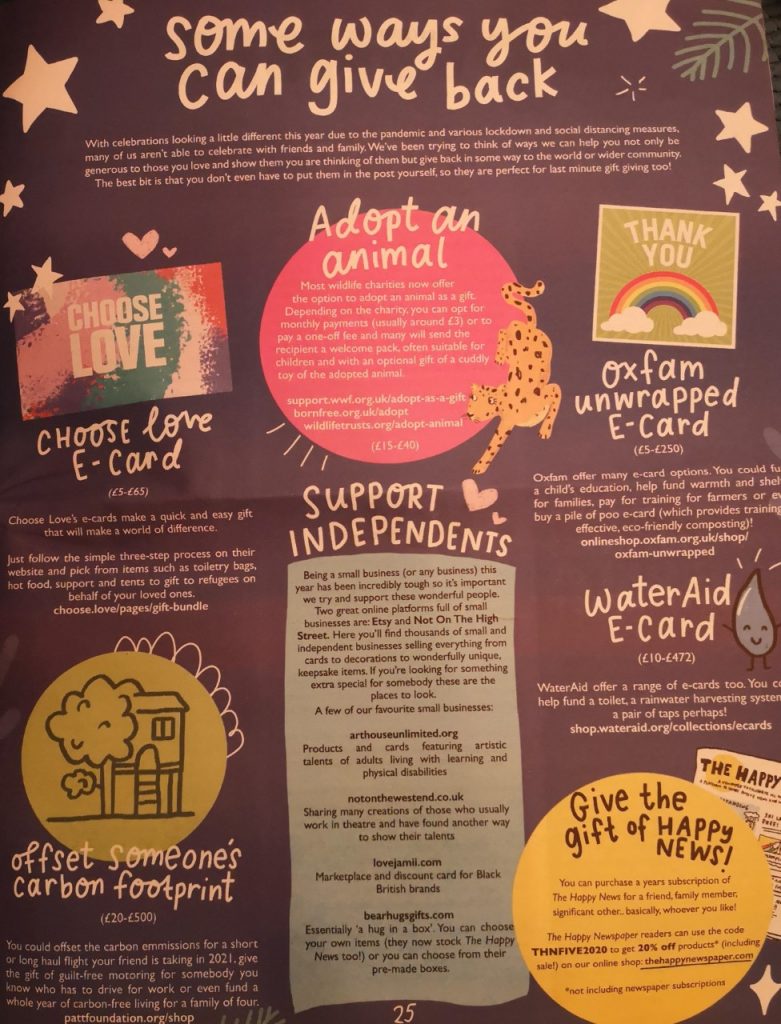 some ways you
can give back
With celebrations looking a little different this year due to the pandemic and various lockdown and social distancing measures,
many of us aren't able to celebrate with friends and family. We've been trying to think of ways we can help you not only be
generous to those you love and show them you are thinking of them but give back in some way to the world or wider community.
The best bit is that you don't even have to put them in the post yourself, so they are perfect for last minute gift giving too!
CHOOSE
LOVE
CHOOSE love
E-Card
(£5-£65)
Choose Love's e-cards make a quick and easy gift
that will make a world of difference.
Just follow the simple three-step process on their
website and pick from items such as toiletry bags,
hot food, support and tents to gift to refugees on
behalf of your loved ones.
choose.love/pages/gift-bundle
offset someone's
carbon footprint
(£20-£500)
You could offset the carbon emmissions for a short
or long haul flight your friend is taking in 2021, give
the gift of guilt-free motoring for somebody you
know who has to drive for work or even fund a
whole year of carbon-free living for a family of four.
pattfoundation.org/shop
Adopt an
animal
Most wildlife charities now offer
the option to adopt an animal as a gift.
Depending on the charity, you can opt for
monthly payments (usually around £3) or to
pay a one-off fee and many will send the
recipient a welcome pack, often suitable for
children and with an optional gift of a cuddly
toy of the adopted animal.
support.wwf.org.uk/adopt-as-a-gift
bornfree.org.uk/adopt
wildlifetrusts.org/adopt-animal
(£15-£40)
SUPPORT
INDEPENDENTS
Being a small business (or any business) this
year has been incredibly tough so it's important
we try and support these wonderful people.
Two great online platforms full of small
businesses are: Etsy and Not On The High
Street. Here you'll find thousands of small and
independent businesses selling everything from
cards to decorations to wonderfully unique,
keepsake items. If you're looking for something
extra special for somebody these are the
places to look.
A few of our favourite small businesses:
arthouseunlimited.org
Products and cards featuring artistic
talents of adults living with learning and
physical disabilities
notonthewestend.co.uk
Sharing many creations of those who usually
work in theatre and have found another way
to show their talents
lovejamii.com
Marketplace and discount card for Black
British brands
bearhugsgifts.com
Essentially 'a hug in a box'. You can choose
your own items (they now stock The Happy
News too!) or you can choose from their
pre-made boxes.
THANK
YOU
oxfam
unwrapped
E-Card
(£5-£250)
Oxfam offer many e-card options. You could fu
a child's education, help fund warmth and shel
for families, pay for training for farmers or ev
buy a pile of poo e-card (which provides training
effective, eco-friendly composting)!
onlineshop.oxfam.org.uk/shop/
oxfam-unwrapped
waterAid
E-card
(£10-£472)
WaterAid offer a range of e-cards too. You co
help fund a toilet, a rainwater harvesting system
a pair of taps perhaps!
shop.wateraid.org/collections/ecards
THE HAPPY
Give the
gift of HAPPY
NEWS!
You can purchase a years subscription of
The Happy News for a friend, family member,
significant other.. basically, whoever you like!
The Happy Newspaper readers can use the code
THNFIVE2020 to get 20% off products* (including
sale!) on our online shop: thehappynewspaper.com
*not including newspaper subscriptions
25